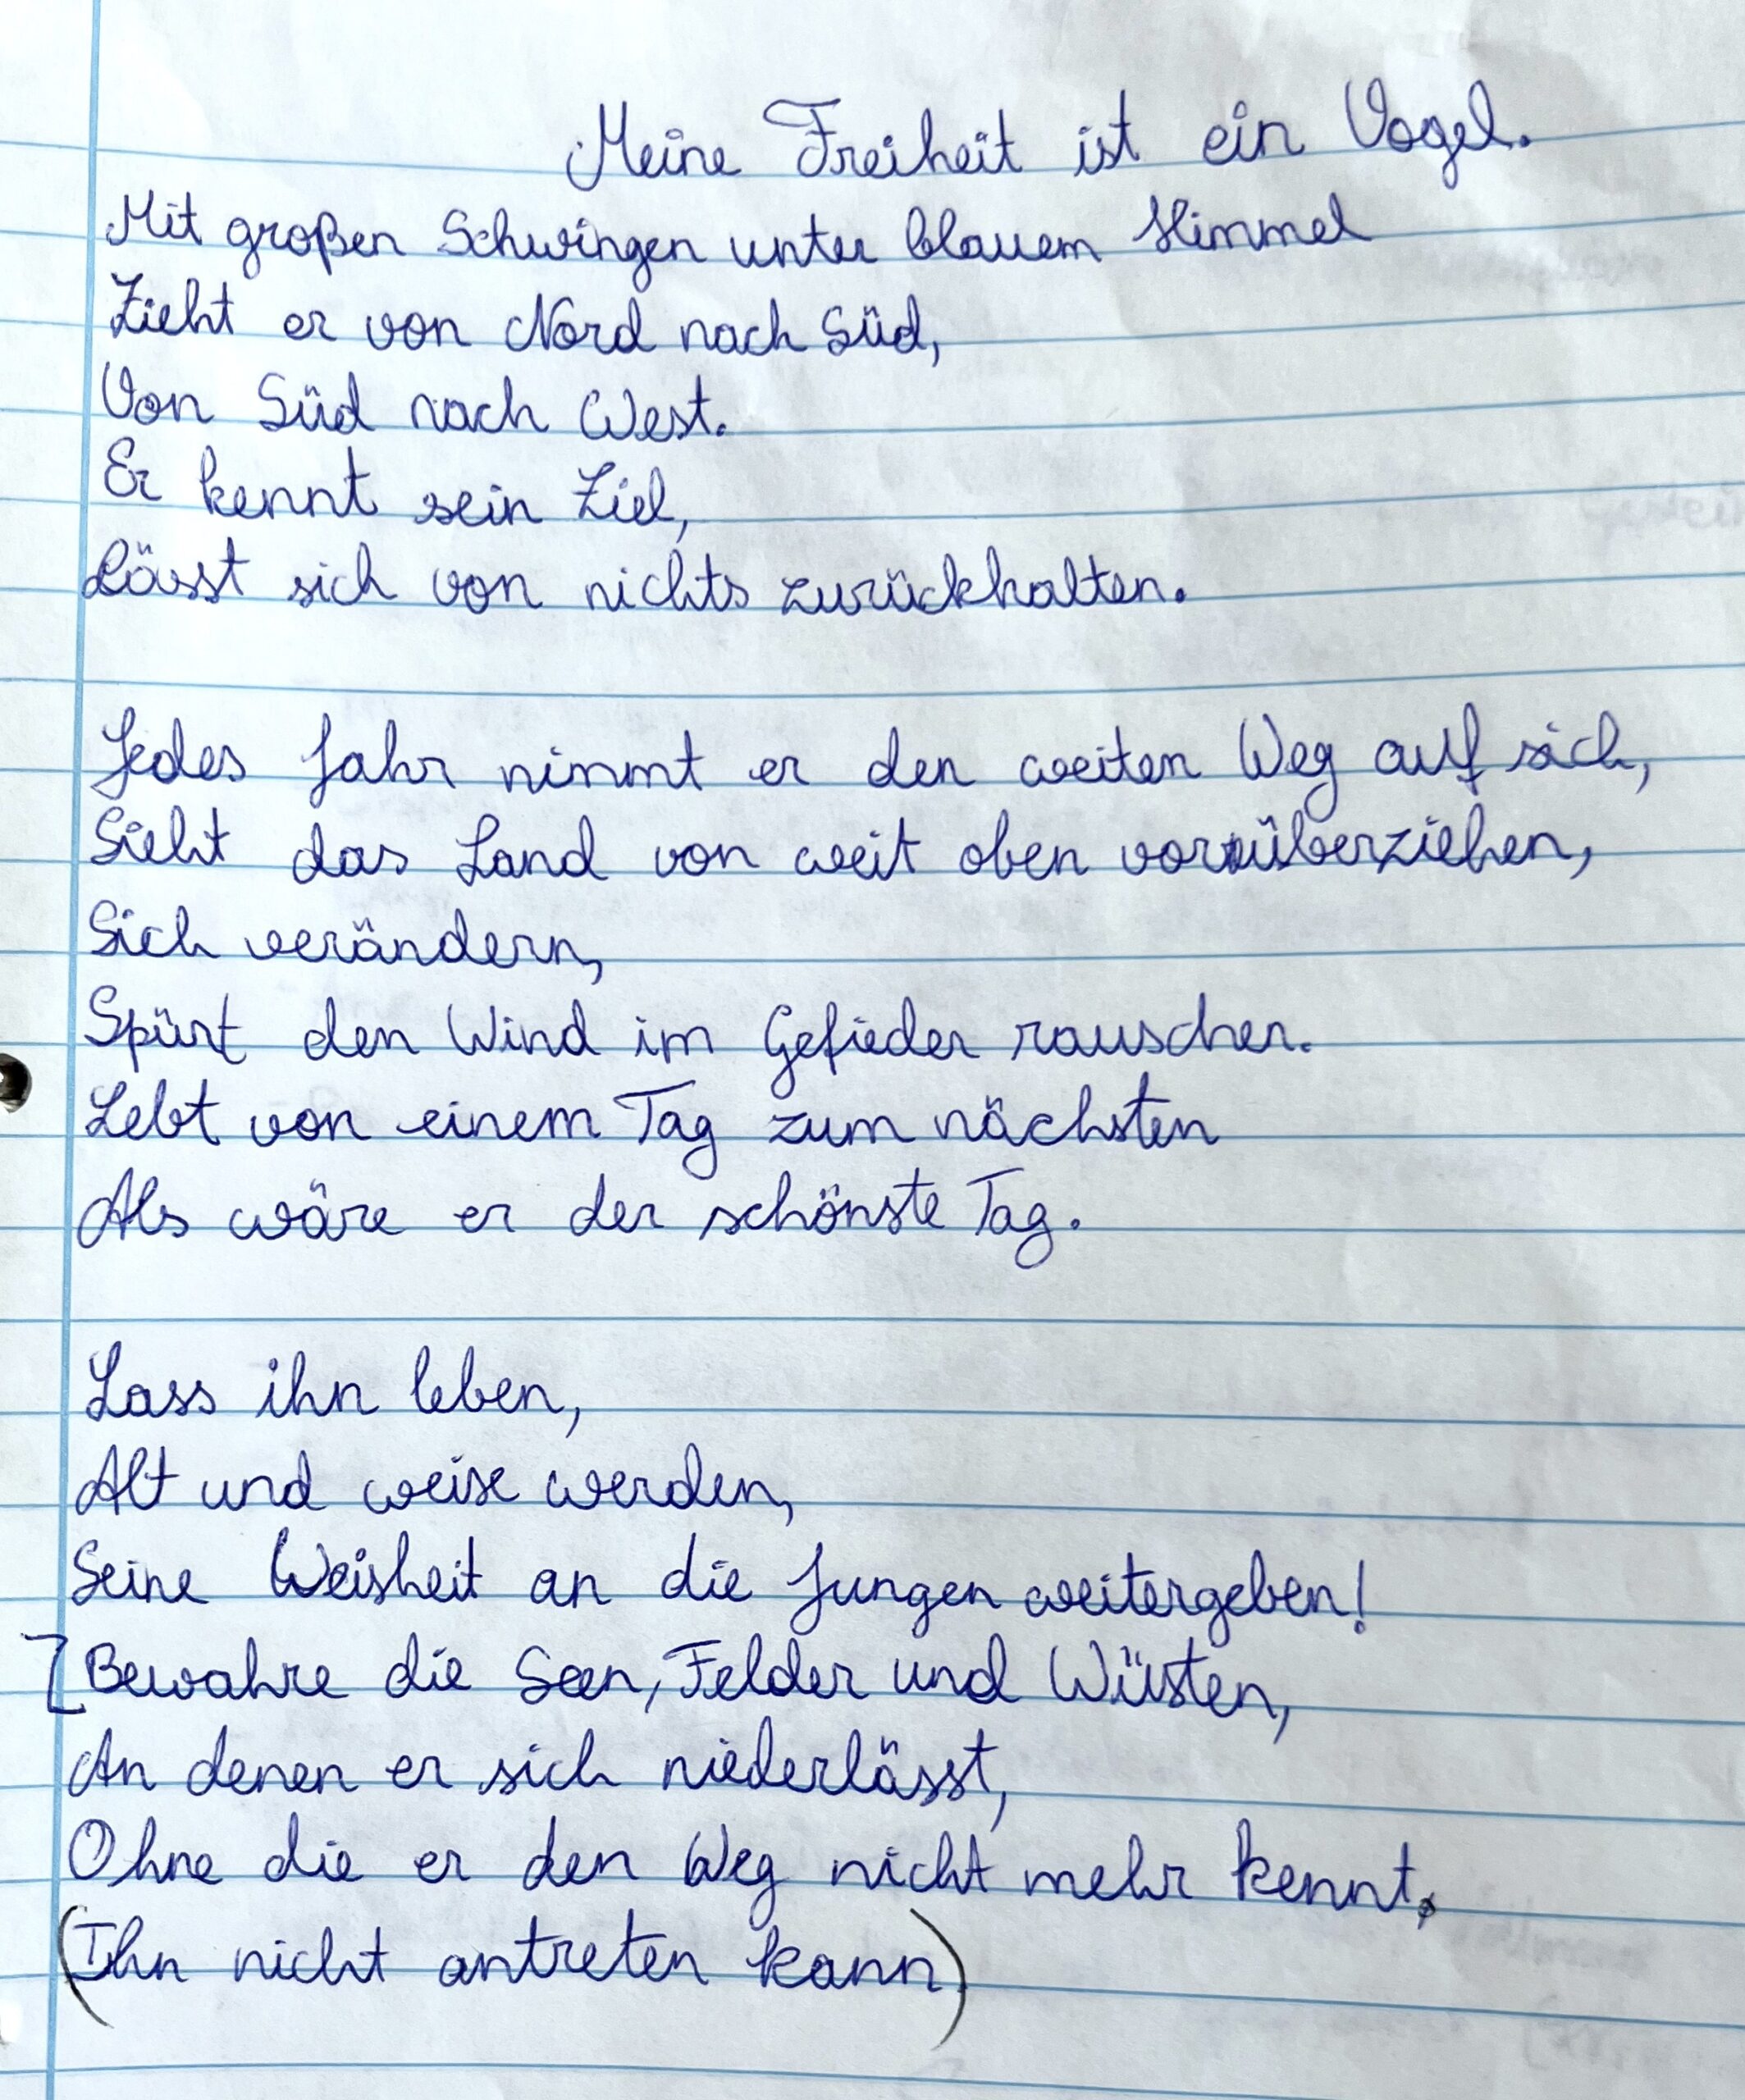 Meine Freiheit ist ein Vogel.
Mit großen Schwingen unter blauem Himmel
Zieht er von Nord nach Süd,
Von Süd nach West.
Er kennt sein Ziel,
Lässt sich von nichts zurückhalten.
Jedes Jahr nimmt er den weiten Weg auf sich,
Sieht das Land von weit oben vorüberziehen,
Sich verändern,
Spürt den Wind im Gefieder rauschen.
Lebt von einem Tag zum nächsten
Als wäre er der schönste Tag.
Lass ihn leben,
Alt und weise werden,
Seine Weisheit an die Jungen weitergeben!
Bewahre die Seen, Felder und Wüsten,
An denen er sich niederlässt,
Ohne die er den Weg nicht mehr kennt.
(Ihn nicht antreten kann)